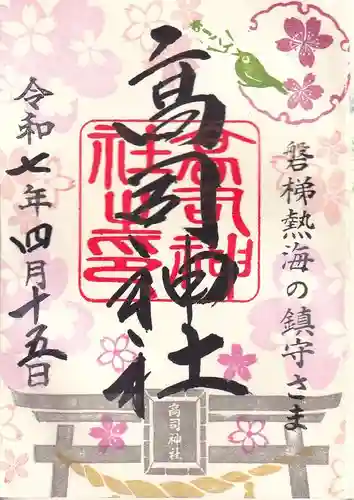 磐梯熱海の鎮守さま
高司神社
高司神
社之印
令和七年四月十五日
高司神社